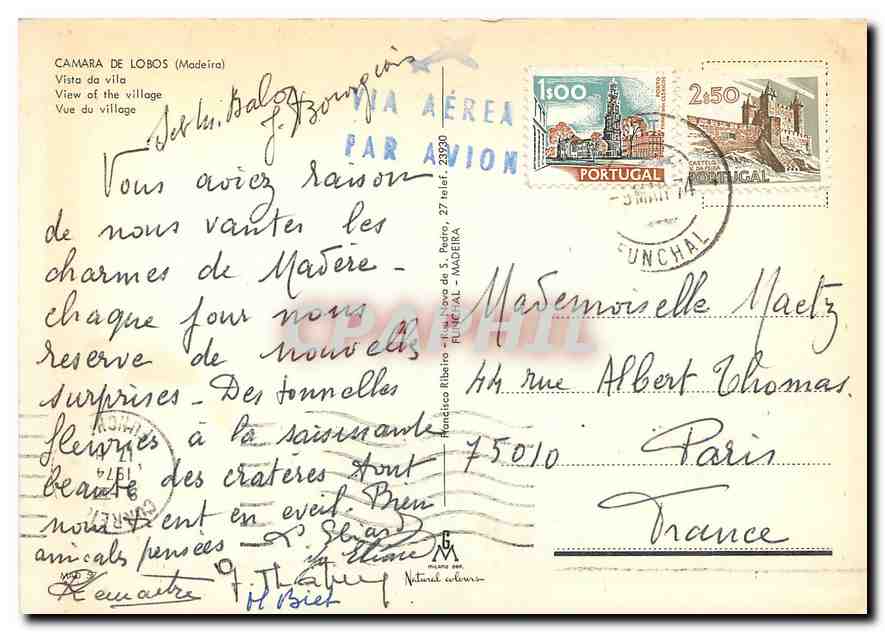 CAMARA DE LOBOS (Madeira)
Vista da vila
View of the village
Vue du village
J. Bourgeois
VIA AÉREA
PAR AVION
1$00
PORTUGAL
2$50
PORTUGAL
74
FUNCHAL
Vous aviez raison
de nous vanter les
charmes de Madère -
chaque jour nous
reserve de nouvelles
surprises - Des tonnelles
fleuries à la saisissante
beauté des cratères tout
nous tient en eveil. Bien
amicales pensées -
Lemaitre
M Biet
Francisco Ribeiro - Rua Nova de S. Pedro, 27 telef. 23930
FUNCHAL - MADEIRA
Mademoiselle Maetz
44 rue Albert Thomas.
75010 Paris
France
1974
GM
Natural colours
CPAPHIL